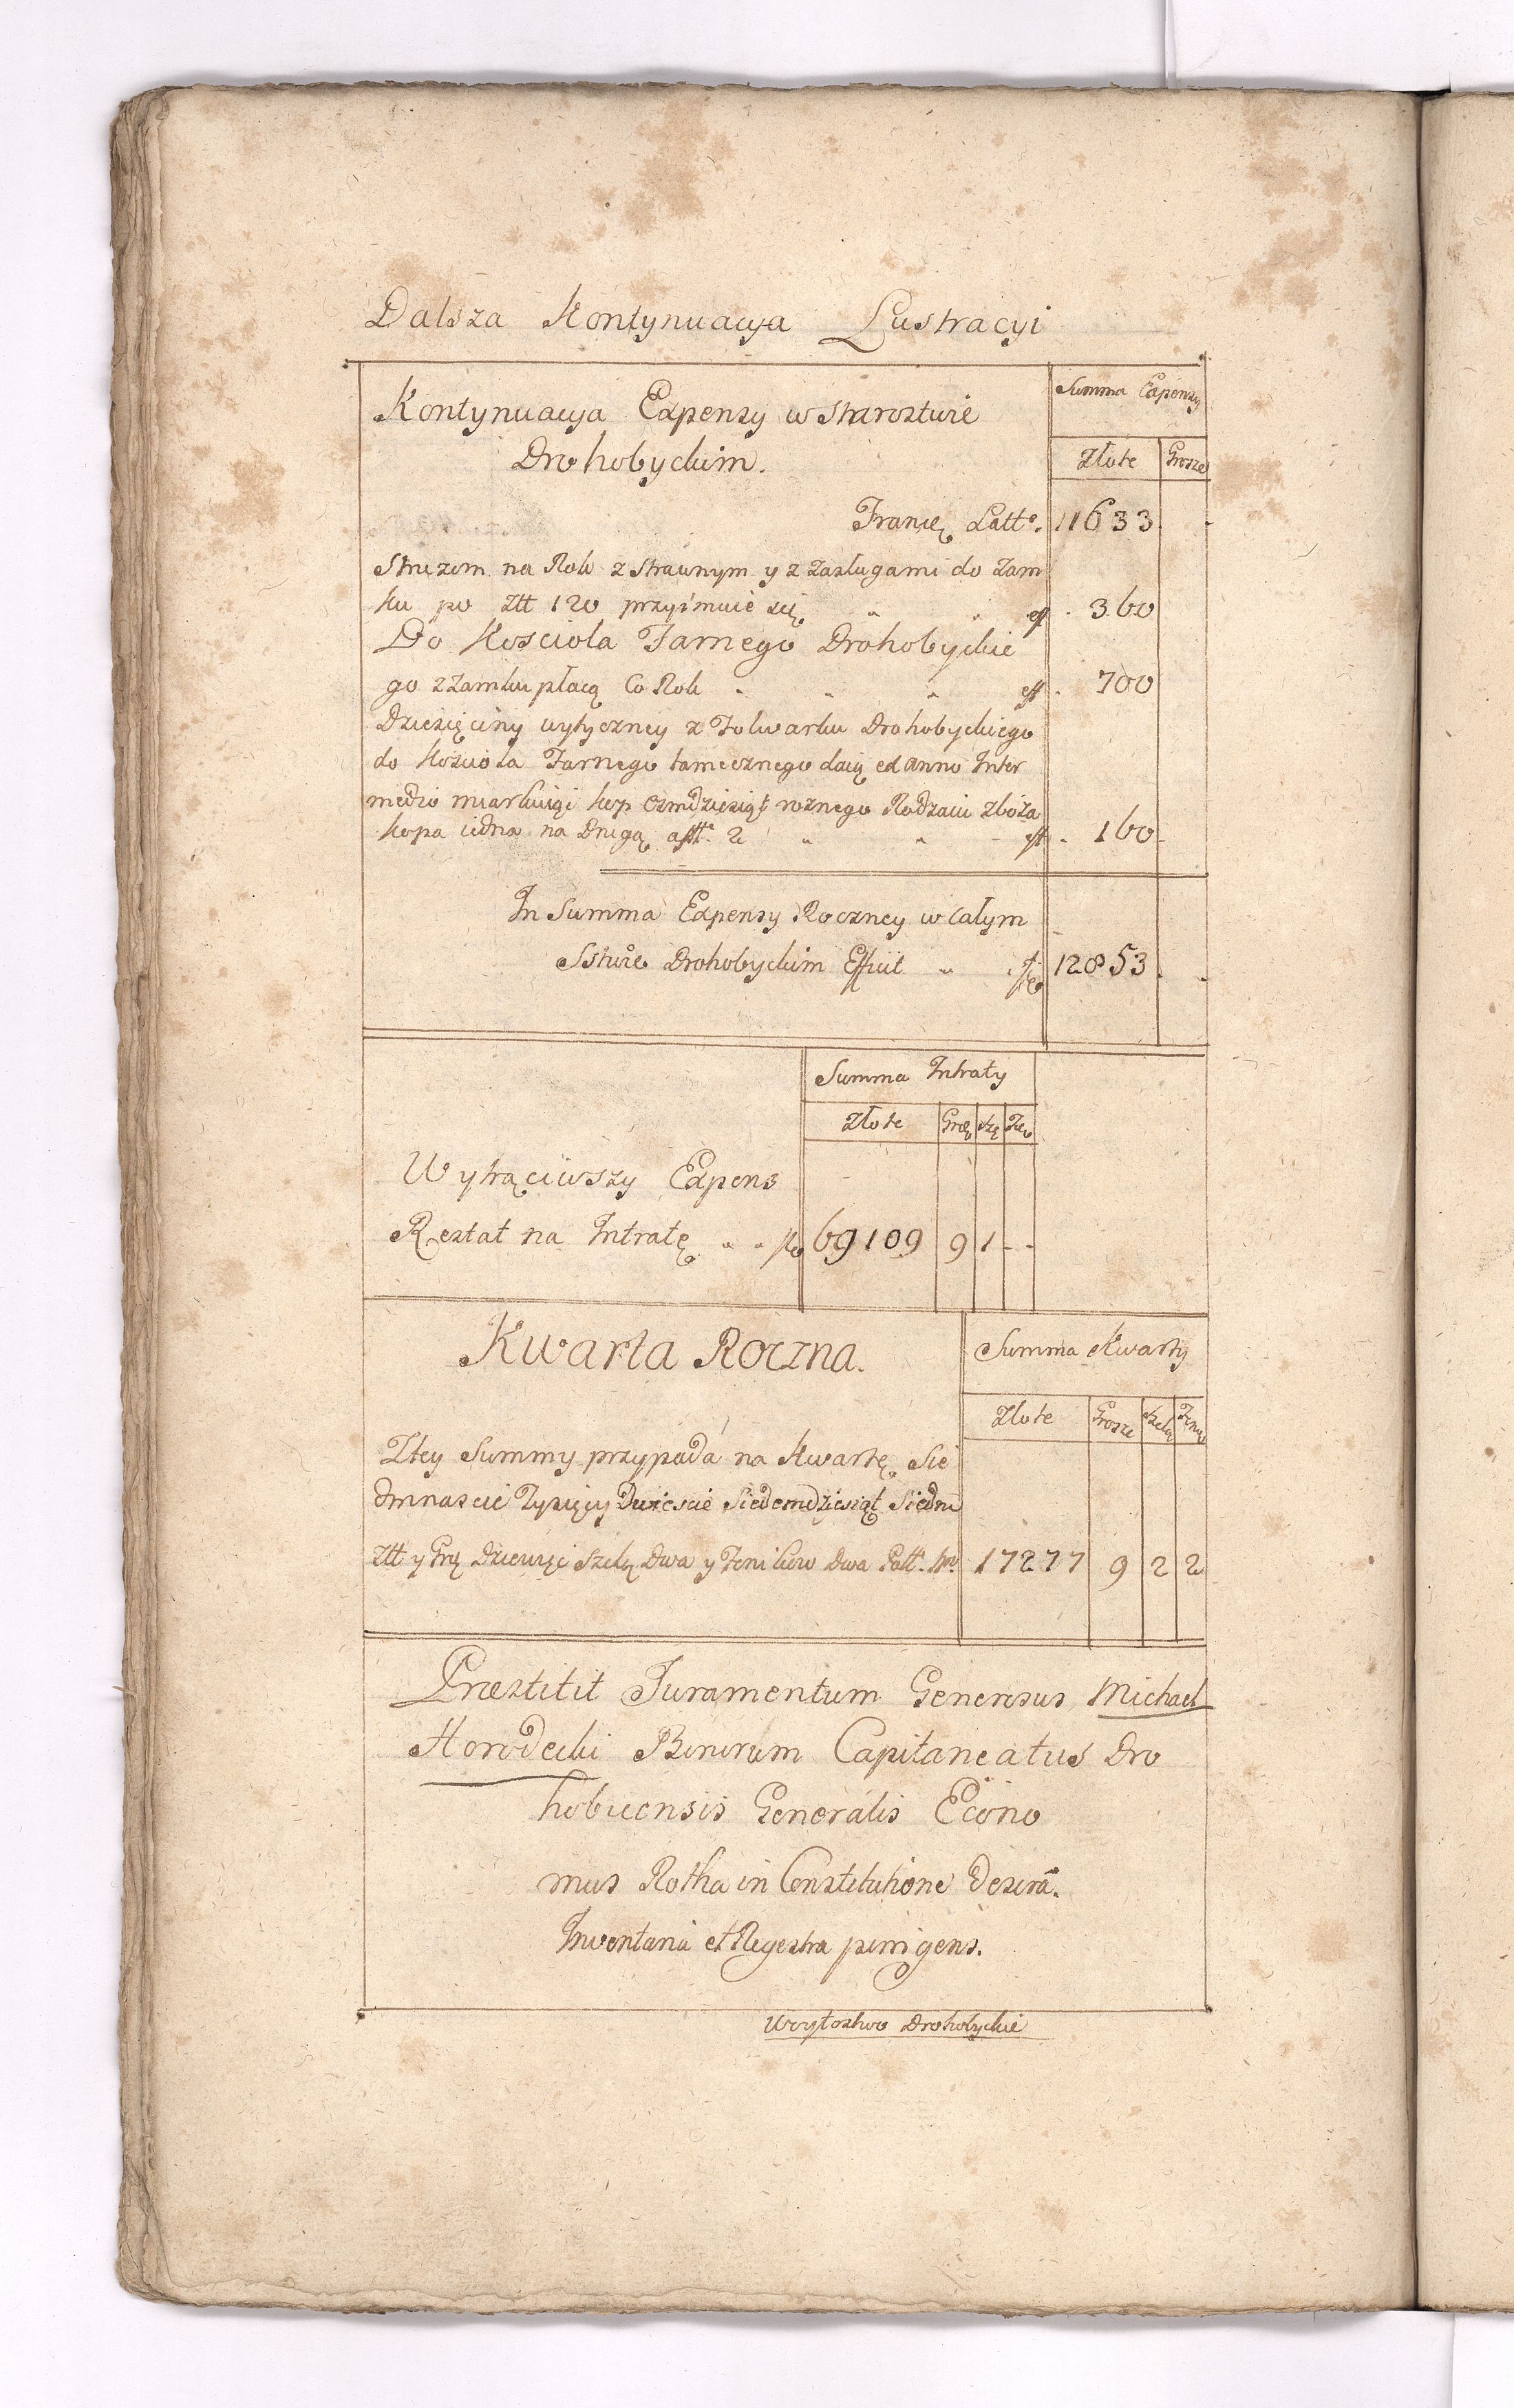 Dalsza Kontynuacya Lustracyi
Kontynuacya Expensy w Starostwie
Drohobyckim.
Summa Expensy
Złote Grosze
Latt. 11633
na Rok z Strawnym y z Zasługami do Zam
ku po Złt 120 przyimuie się eff 360
Do Kościoła Farnego Drohobyckie
go z Zamku płacą Co Rok eff 700
Dziesięciny wytyczney z Folwarku Drohobyckiego
do Kościoła Farnego tamecznego daią ex anno Inter
medio miarkuiąc kop Ośmdziesiąt rożnego Rodzaiu zboża
kopa iedna na Drugą a złt. 2 eff 160
In Summa Expensy Roczney w Całym
Sstwie Drohobyckim Efficit 12853
Summa Intraty
Złote
Wytrąciwszy Expens
Restat na Intratę 69109 9 1
Kwarta Roczna.
Summa Kwarty
Złote Grosze
Z tey Summy przypada na Kwartę Sie
dmnascie Tysięcy Dwiescie Siedemdziesiąt Siedm
Złt y Gr Dziewięć Szel Dwa y Fenikow Dwa 17277 9 2 2
Præstitit Juramentum Generosus Michael
Horodecki Bonorum Capitaneatus Dro
hobicensis Generalis Econo
mus Rotha in Constitutione Descrā.
Inventaria et Regestra porrigens.
Woytostwo Drohobyckie